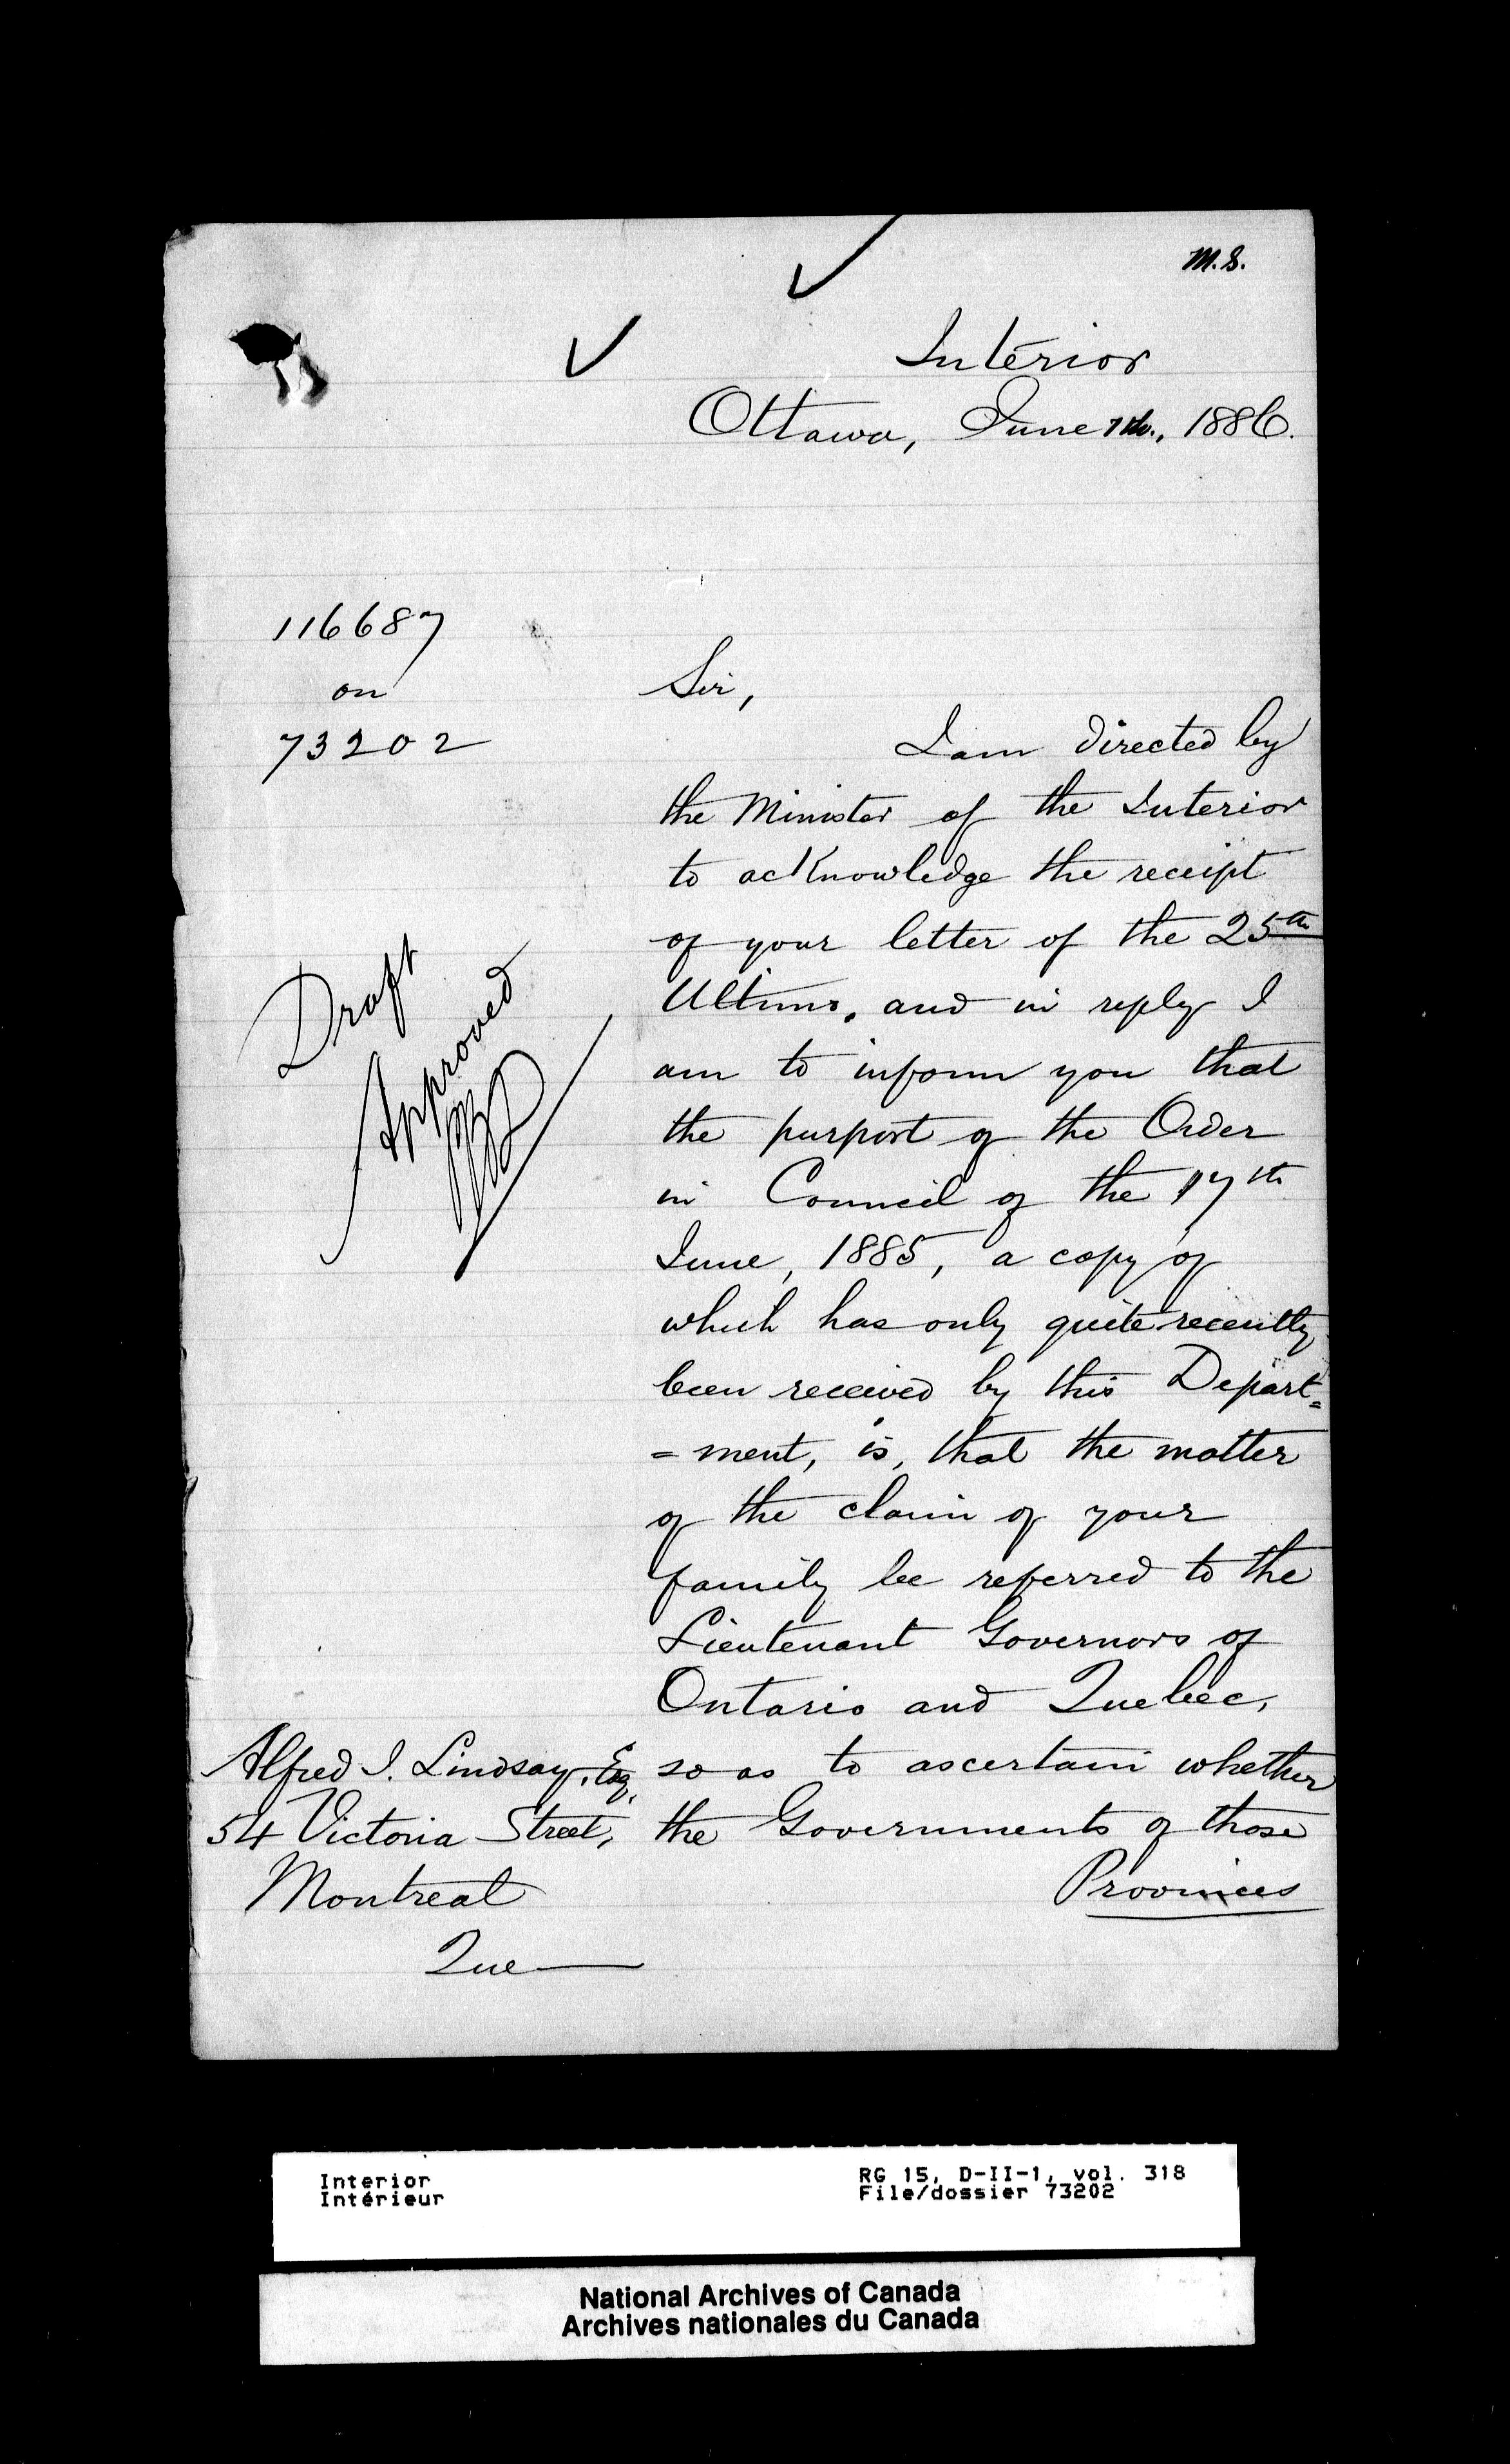 M.S.
Interior
Ottawa, June 7th., 1886.
116687
on
73202
Sir,
I am directed by
the Minister of the Interior
to acknowledge the receipt
of your letter of the 25th
Ultimo, and in reply I
am to inform you that
the purport of the Order
in Council of the 17th
June, 1885, a copy of
which has only quite recently
been received by this Depart=
=ment, is, that the matter
of the claim of your
family be referred to the
Lieutenant Governors of
Ontario and Quebec,
so as to ascertain whether
the Governments of those
Provinces
Draft
Approved
Alfred I. Lindsay, Esq,
54 Victoria Street,
Montreal
Que
Interior
Intérieur
RG 15, D-II-1, vol. 318
File/dossier 73202
National Archives of Canada
Archives nationales du Canada